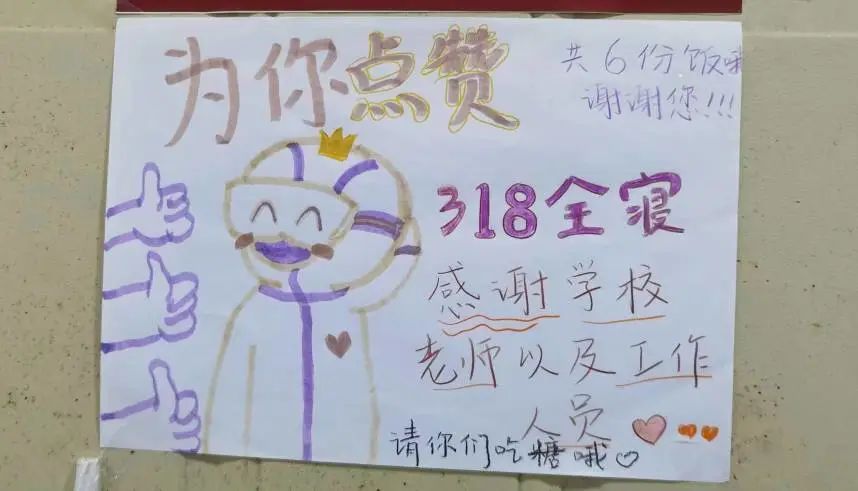 为你点赞
共6份饭哦
谢谢您!!!
318全寝
感谢学校
老师以及工作
人员
请你们吃糖哦♡